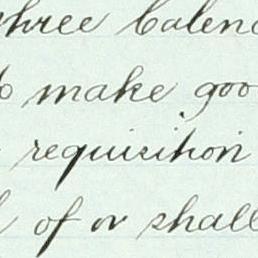 three Calend
to make goo
requisition
of or shall